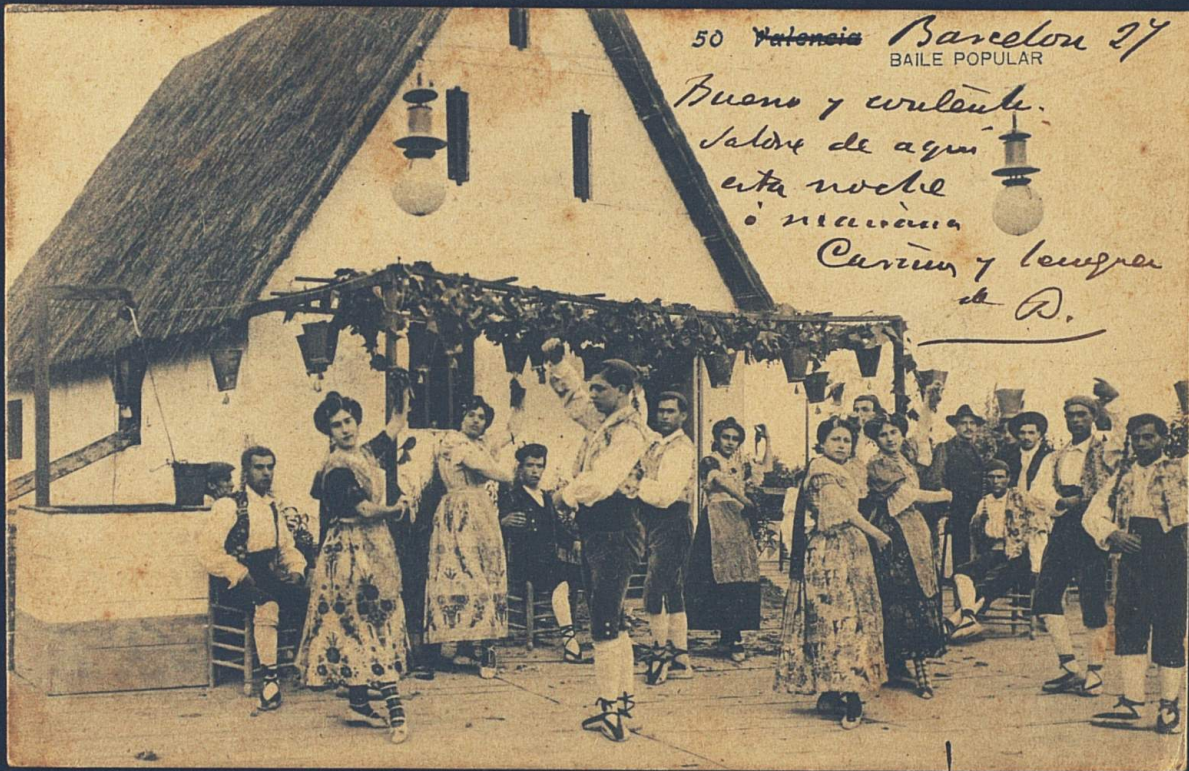 50 Valencia Barcelon 27
BAILE POPULAR
Bueno y contento.
Saldré de aquí
esta noche
ó mañana
Cariños y
de D.